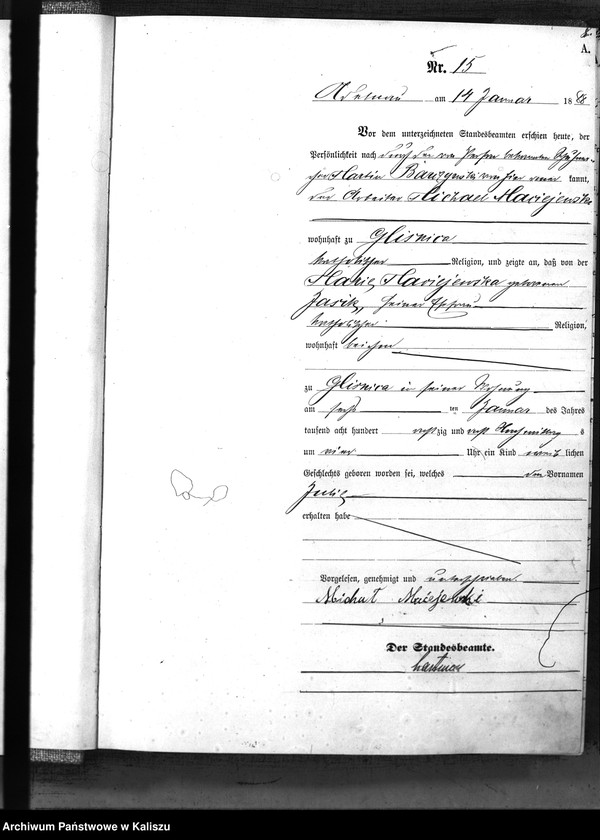 A.
Nr. 15
Adelnau am 14 Januar 1888
Vor dem unterzeichneten Standesbeamten erschien heute, der
Persönlichkeit nach durch den von Person bekannten
Martin kannt,
der Arbeiter Michael Maciejewski
wohnhaft zu Glisnica
katholischer Religion, und zeigte an, daß von der
Marie Maciejewska geborenen
Jasik, seiner Ehefrau
katholischer Religion,
wohnhaft bei ihm
zu Glisnica in seiner Wohnung
am sechs ten Januar des Jahres
tausend acht hundert achtzig und acht Nachmittag s
um vier Uhr ein Kind weib lichen
Geschlechts geboren worden sei, welches den Vornamen
Julie
erhalten habe
Vorgelesen, genehmigt und unterschrieben
Michał Maciejewski
Der Standesbeamte.
Archiwum Państwowe w Kaliszu